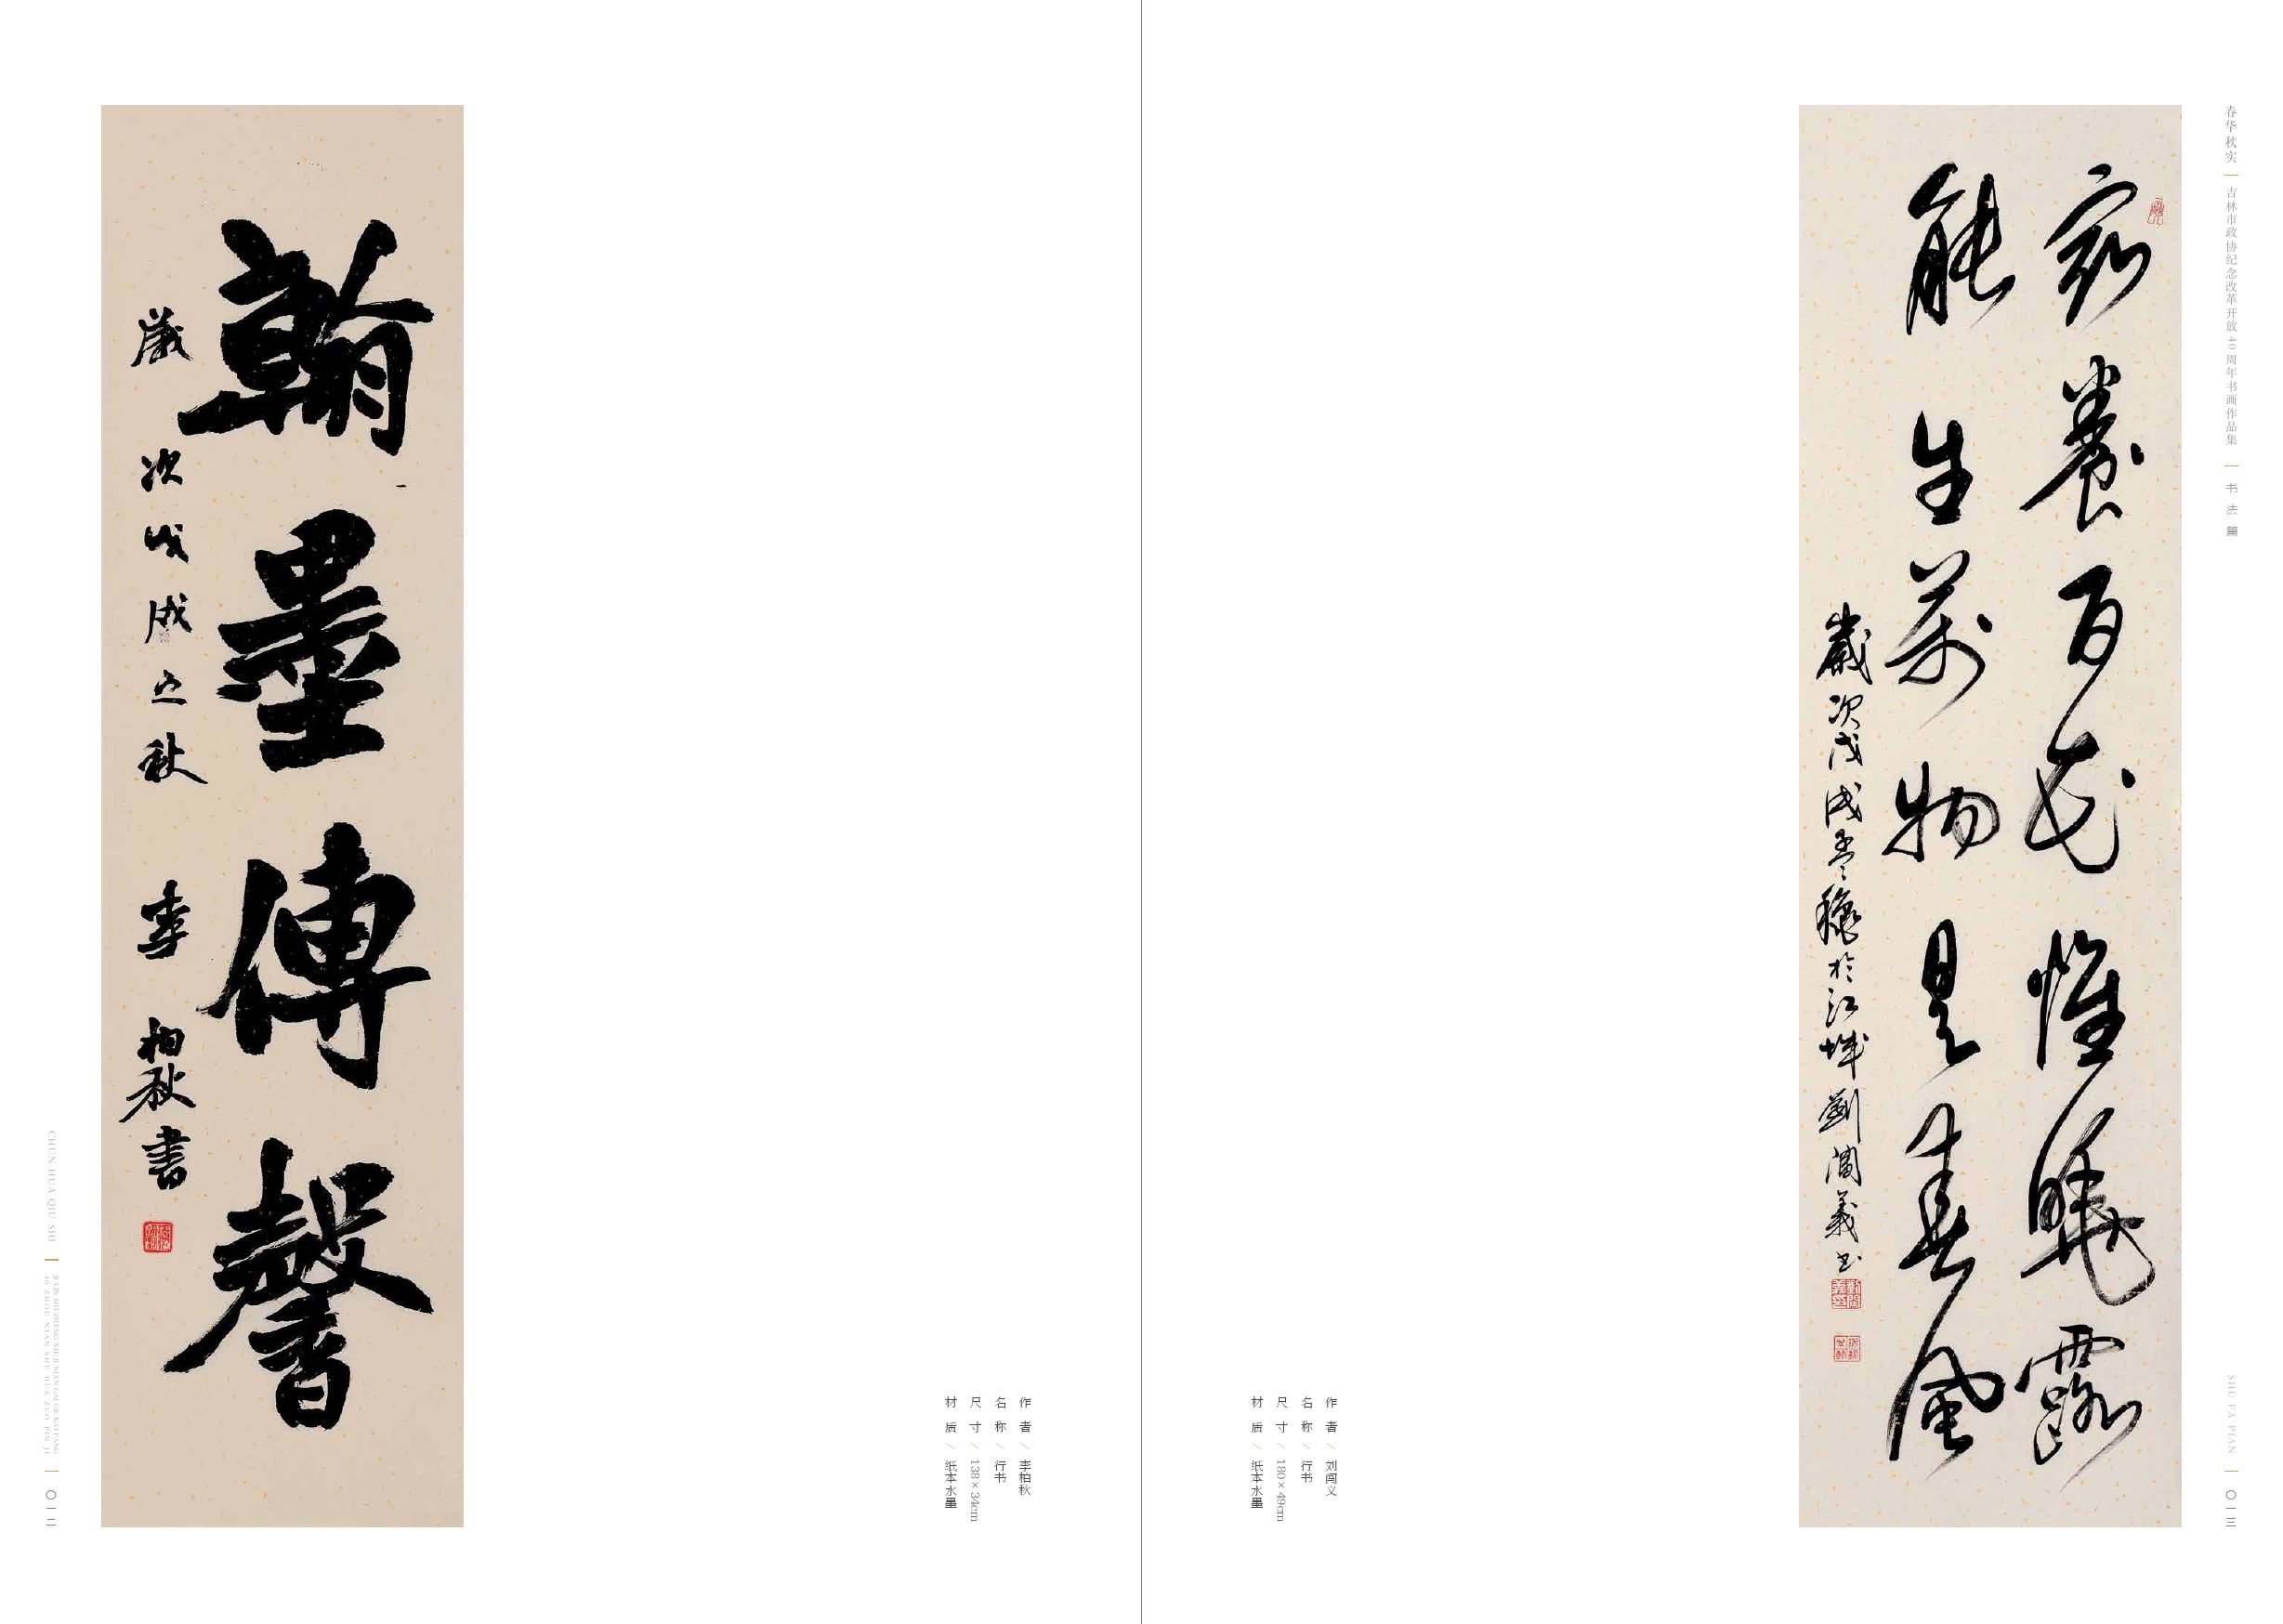 翰墨傳馨
歲次戊戌之秋 李柏秋書
作者/李柏秋
名称/行书
尺寸/138×34cm
材质/纸本水墨
CHUN HUA QIU SHI
JI LIN SHI ZHENG XIE JI NIAN GAI GE KAI FANG
40 ZHOU NIAN SHU HUA ZUO PIN JI
〇一二
春华秋实
吉林市政协纪念改革开放40周年书画作品集
书法篇
最養百花惟曉露
能生萬物是春風
歲次戊戌孟龝於江城劉闖義书
作者/刘闯义
名称/行书
尺寸/180×49cm
材质/纸本水墨
SHU FA PIAN
〇一三